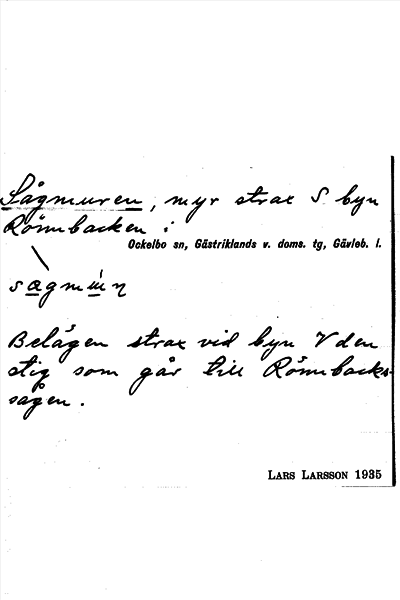 Sågmuren, myr strax S. byn
Rönnbacken i
Ockelbo sn, Gästriklands v. doms. tg, Gävleb. l.
Belägen strax vid byn V den
stig som går till Rönnbacks-
sågen.
LARS LARSSON 1935